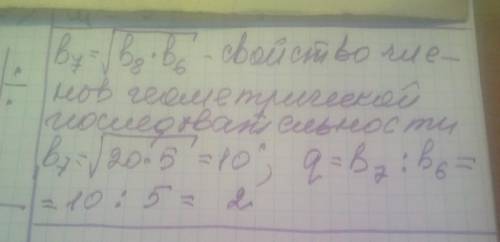 b₇ = √b₈·b₆ - свойство чле-
нов геометрической
последовательности
b₇ = √20·5 = 10; q = b₇ : b₆ =
= 10 : 5 = 2